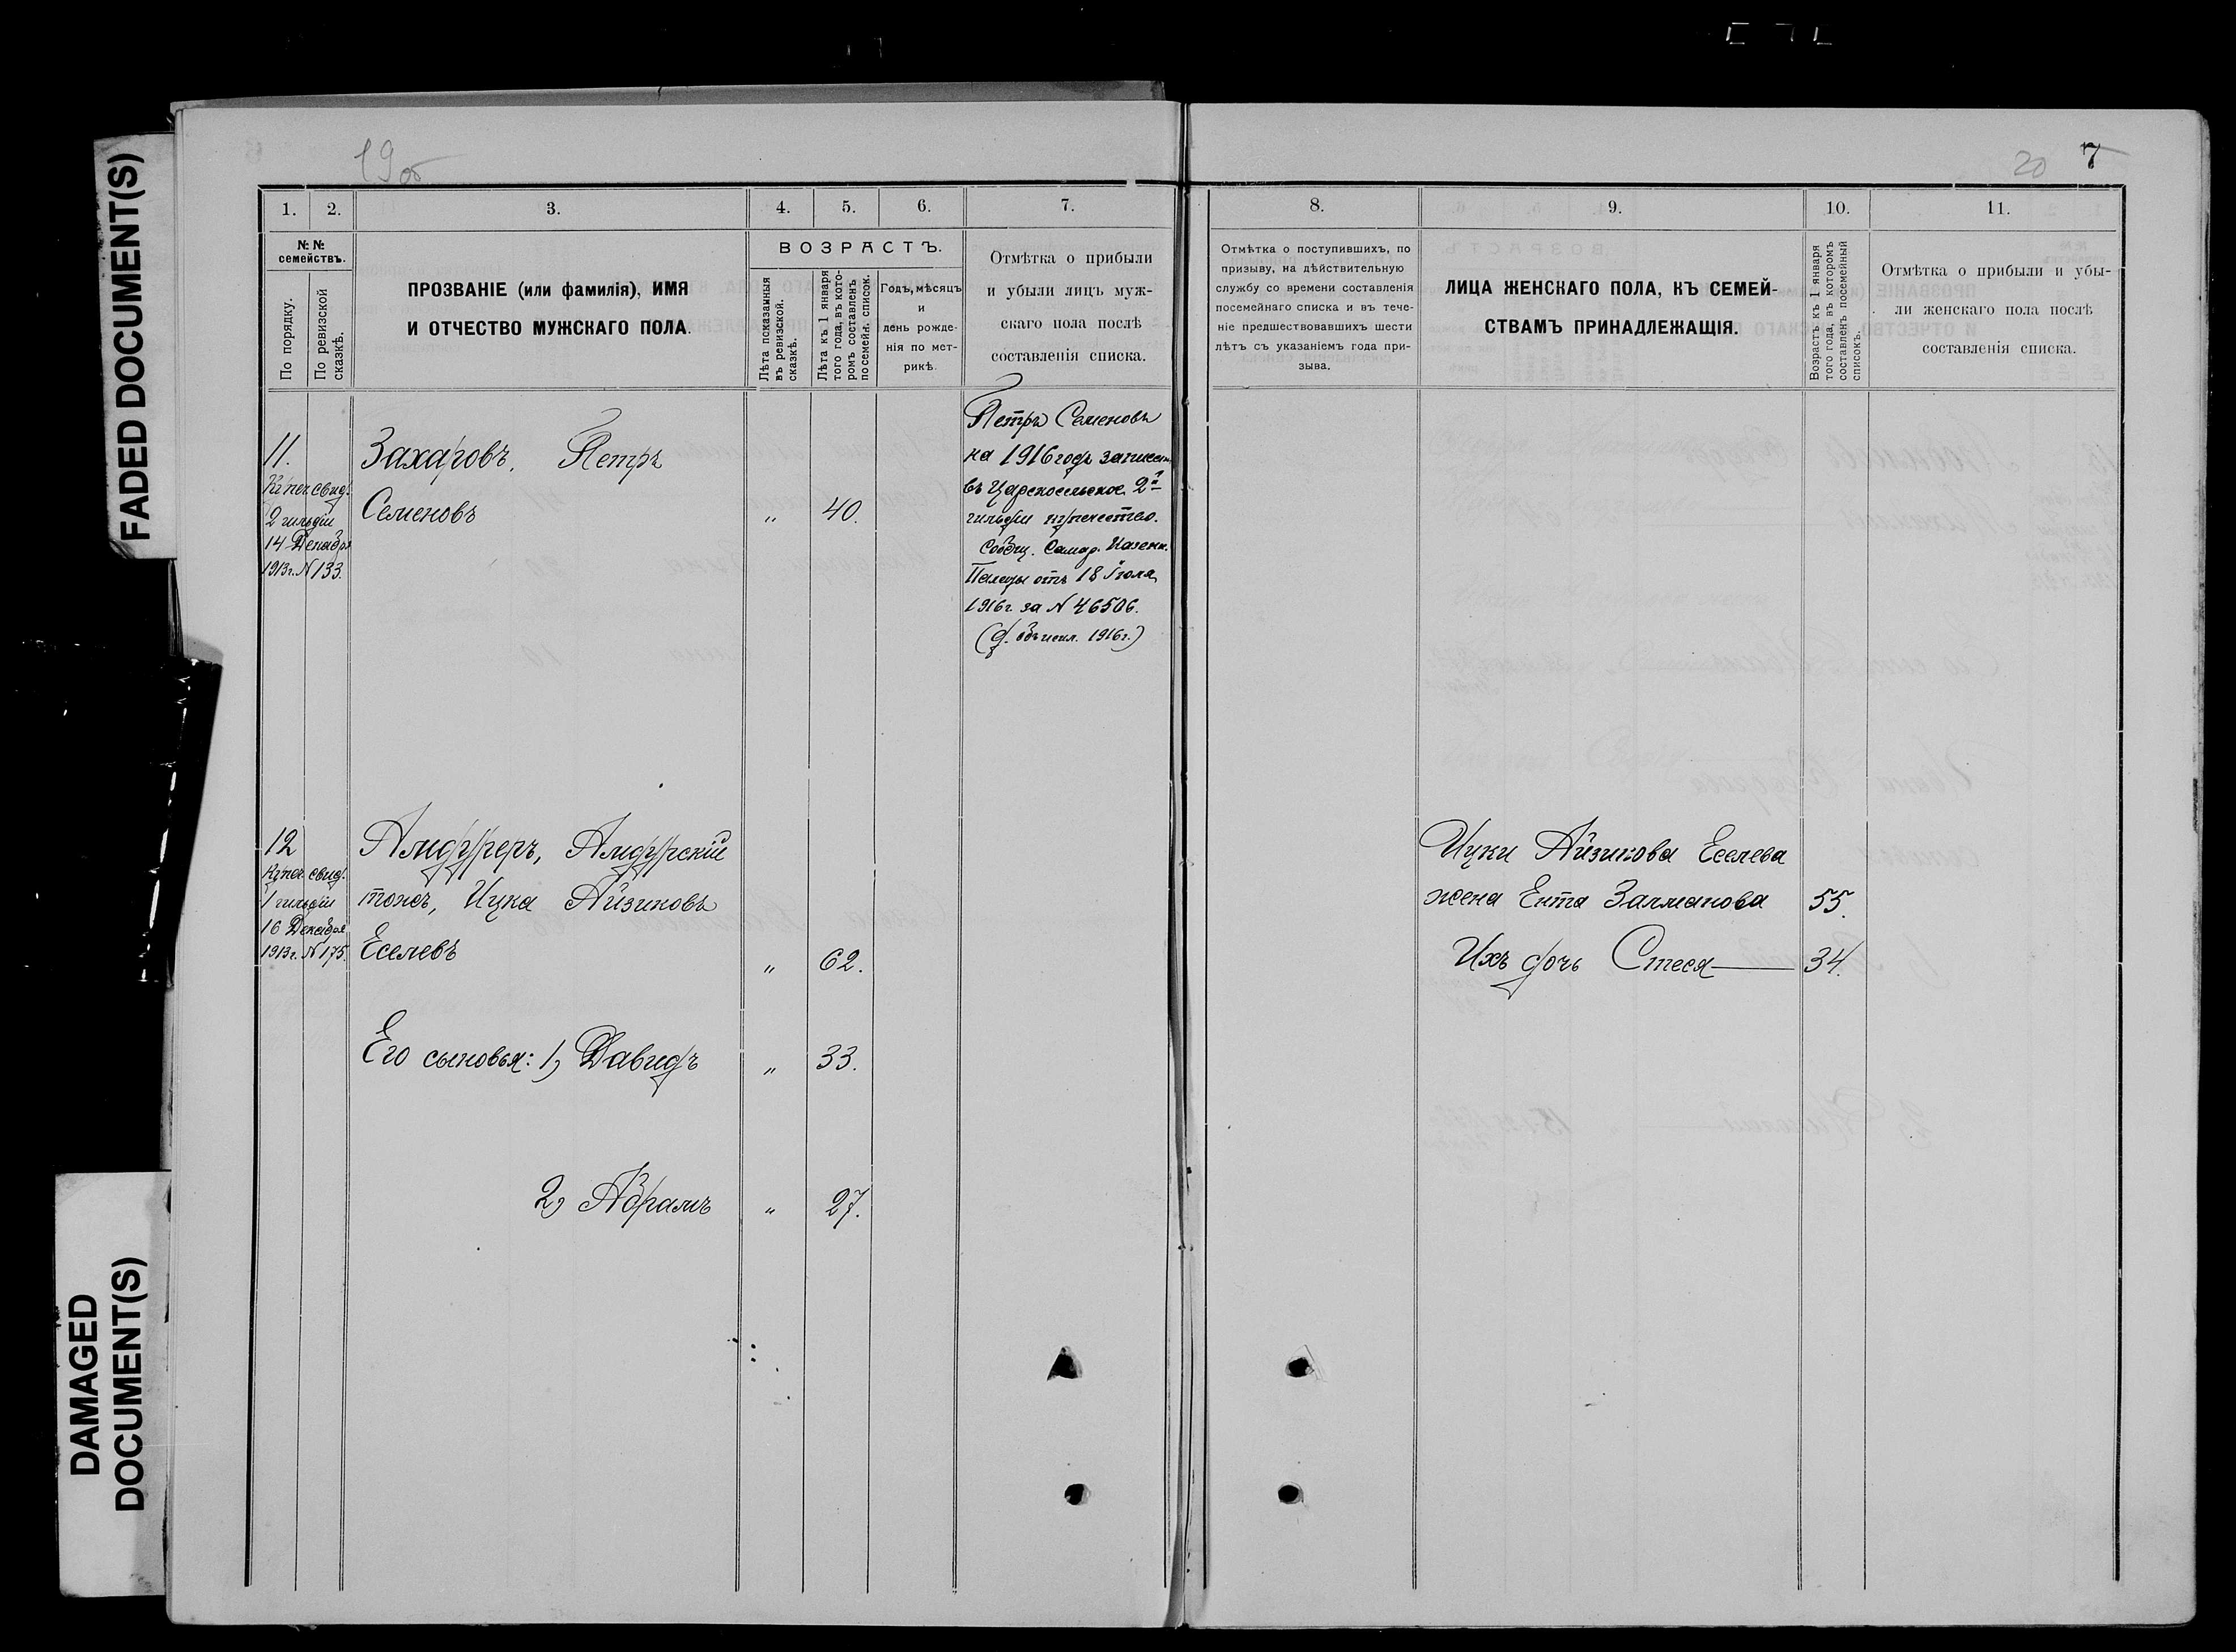 FADED DOCUMENT(S)
DAMAGED
DOCUMENT(S)
19об
1. 2. 3. 4. 5. 6. 7.
№№
семействъ.
По порядку.
По ревизской
сказкѣ.
ПРОЗВАНІЕ (или фамилія), ИМЯ
И ОТЧЕСТВО МУЖСКАГО ПОЛА.
ВОЗРАСТЪ.
Лѣта показанныя
въ ревизской.
сказкѣ.
Лѣта къ 1 января
того года, въ кото-
ромъ составленъ
посемейн. список.
Годъ, мѣсяцъ
и
день рожде-
нія по мет-
рикѣ.
Отмѣтка о прибыли
и убыли лицъ муж-
скаго пола послѣ
составленія списка.
11.
Купеч. свид.
2 гильдіи
14 Декабря
1913г. N 133.
Захаровъ, Петръ
Семеновъ „ 40.
Петръ Семеновъ
на 1916 годъ записанъ
въ Царскосельское 2й
гильдіи купечество.
Сообщ. Самар. Казенн.
Палаты отъ 18 Іюля
1916г. за N 46506.
(д. объ искл. 1916г.)
12
Купеч. свид.
1 гильдіи
16 Декабря
1913г. N 175.
Амдуреръ, Амдурскій
тожъ, Ицка Айзиковъ
Еселевъ „ 62.
Его сыновья: 1) Давидъ „ 33.
2) Абрамъ „ 27.
20 7
8. 9. 10. 11.
Отмѣтка о поступившихъ, по
призыву, на дѣйствительную
службу со времени составленія
посемейнаго списка и въ тече-
ніе предшествовавшихъ шести
лѣтъ съ указаніемъ года при-
зыва.
ЛИЦА ЖЕНСКАГО ПОЛА, КЪ СЕМЕЙ-
СТВАМЪ ПРИНАДЛЕЖАЩІЯ.
Возрастъ къ 1 января
того года, въ которомъ
составленъ посемейный
списокъ.
Отмѣтка о прибыли и убы-
ли женскаго пола послѣ
составленія списка.
Ицки Айзикова Еселева
жена Ента Залманова 55.
Ихъ дочь Стеся 34.